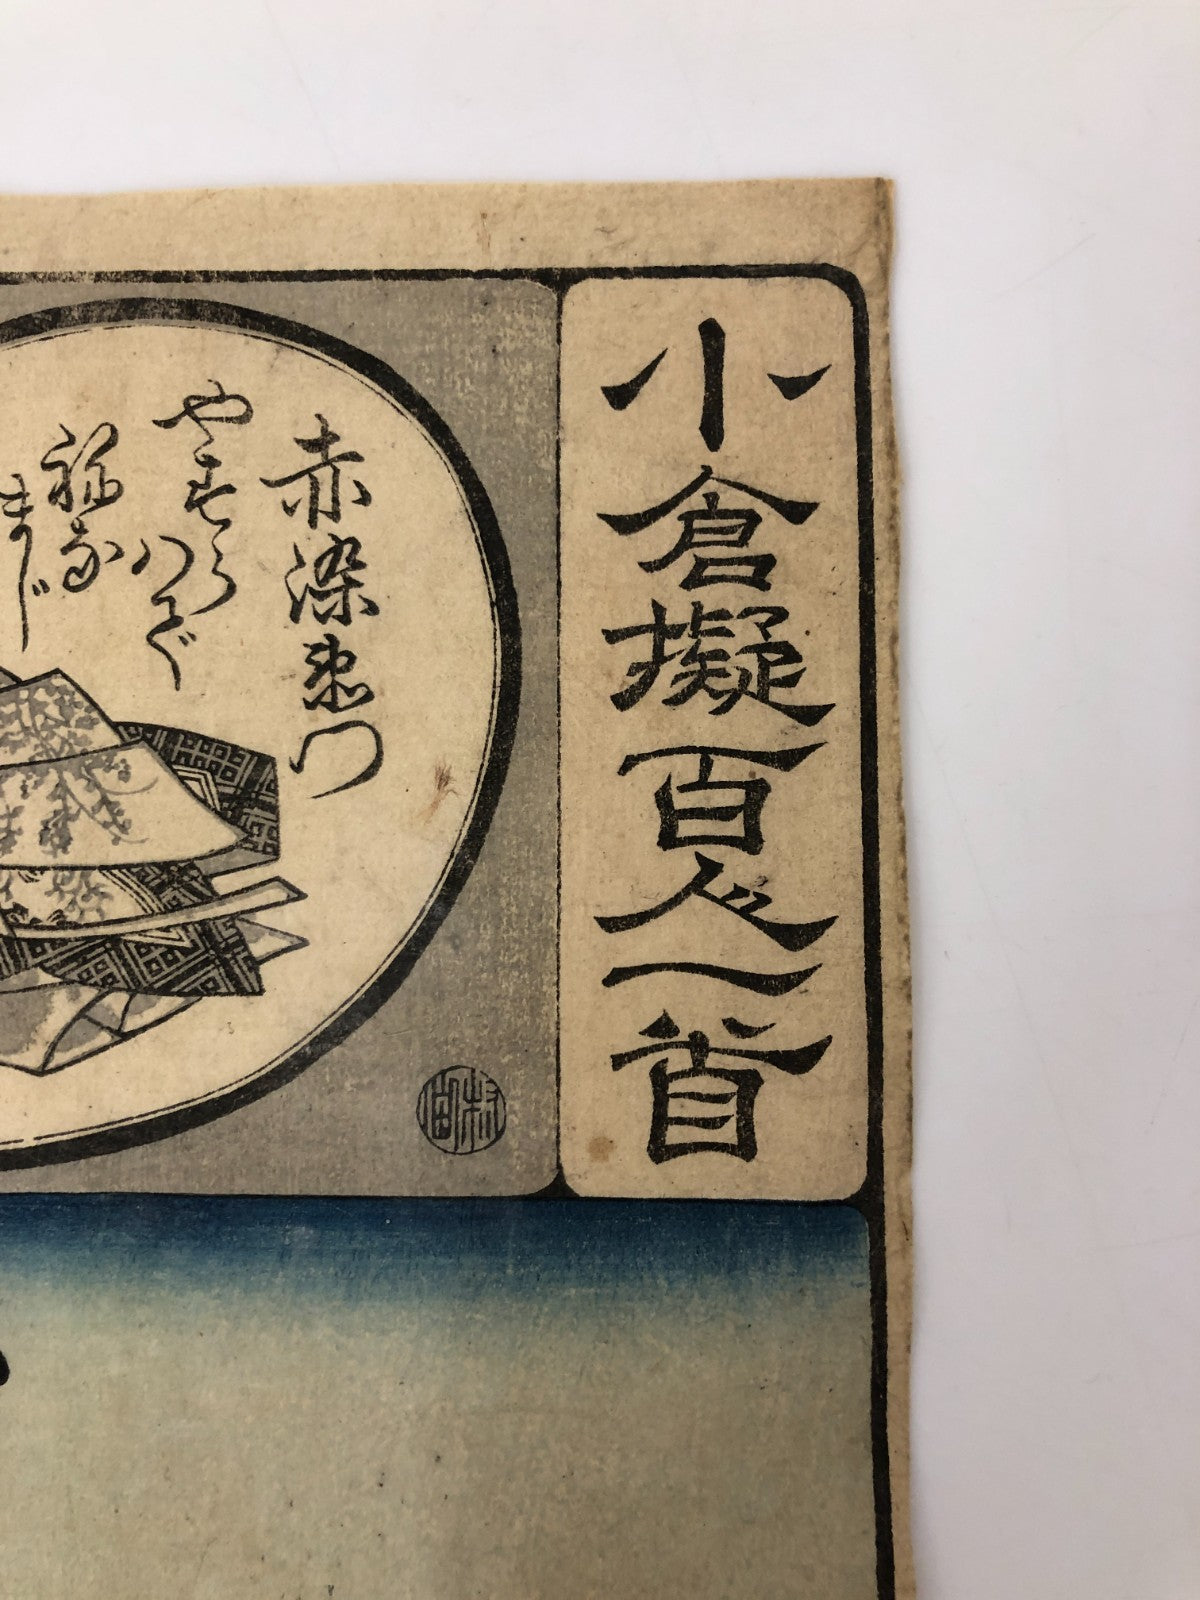 小倉擬百人一首
赤染衛門
やすらはで
ねな
まし